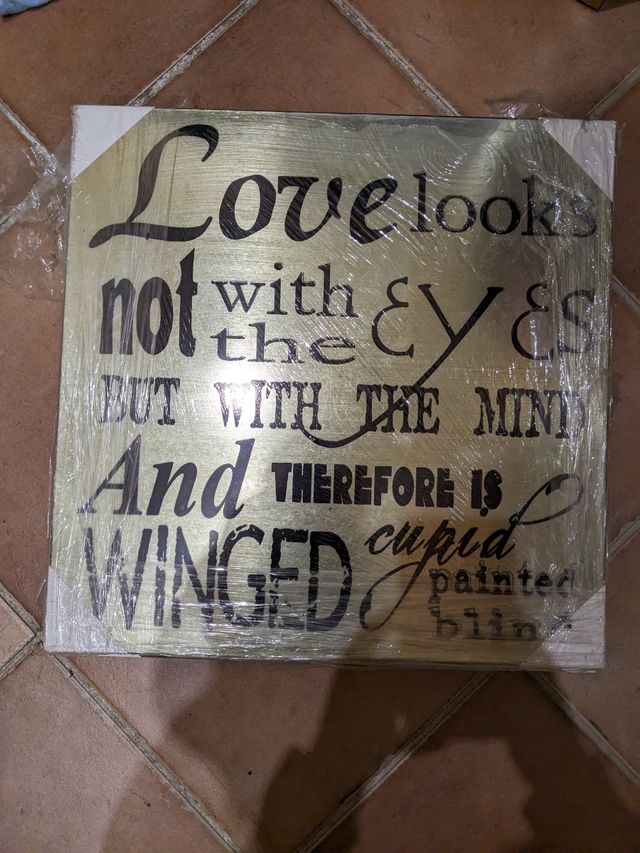 Love looks
not with the EYES
BUT WITH THE MIND
And THEREFORE IS
WINGED cupid
painted
blind